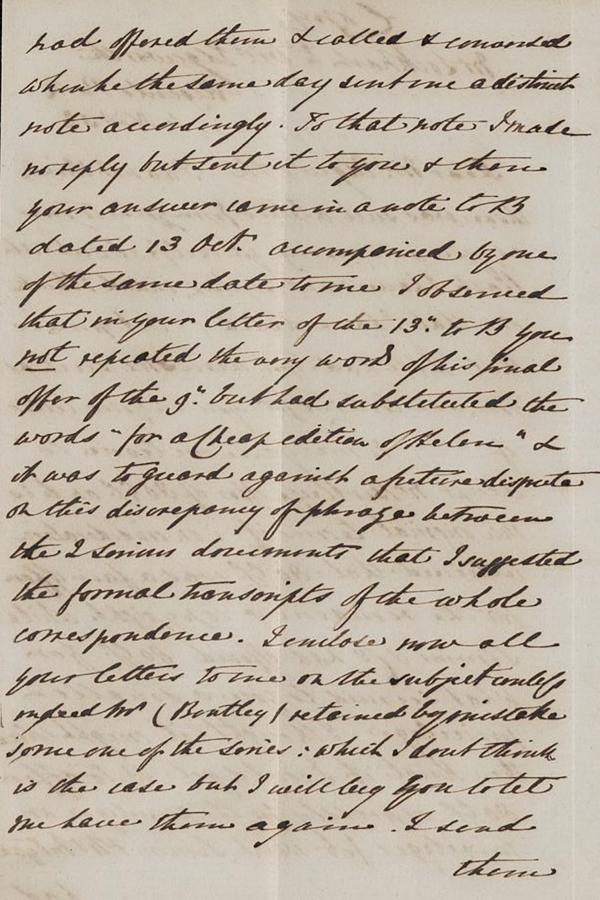 had offered them & called & conversed
when he the same day sent me a distinct
note accordingly. To that note I made
no reply but sent it to you & then
your answer came in a note to B
dated 13 Oct. accompanied by one
of the same date to me I observed
that in your letter of the 13th. to B you
not repeated the very word of his final
offer of the 9th. but had substituted the
words "for a Cheap edition of Helen" &
it was to guard against a future dispute
on this discrepancy of phrase between
the 2 serious documents that I suggested
the formal transcripts of the whole
correspondence. I enclose now all
your letters to me on the subject unless
indeed Mr (Bentley) retained by mistake
some one of the series: which I dont think
is the case but I will beg you to let
me have them again. I send
them